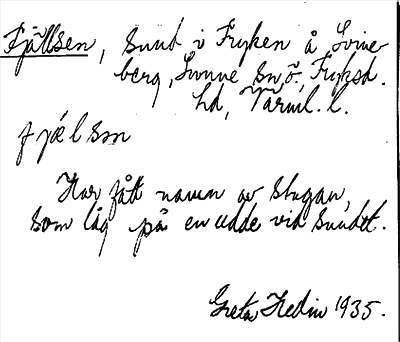 Fjällsen, sund i Fryken å Svine
berg, Sunne sn ö., Fryksd.
hd, Värml. l.
fjælsm
Har fått namn av stugan,
som låg på en udde vid sundet.
Greta Hedin 1935.